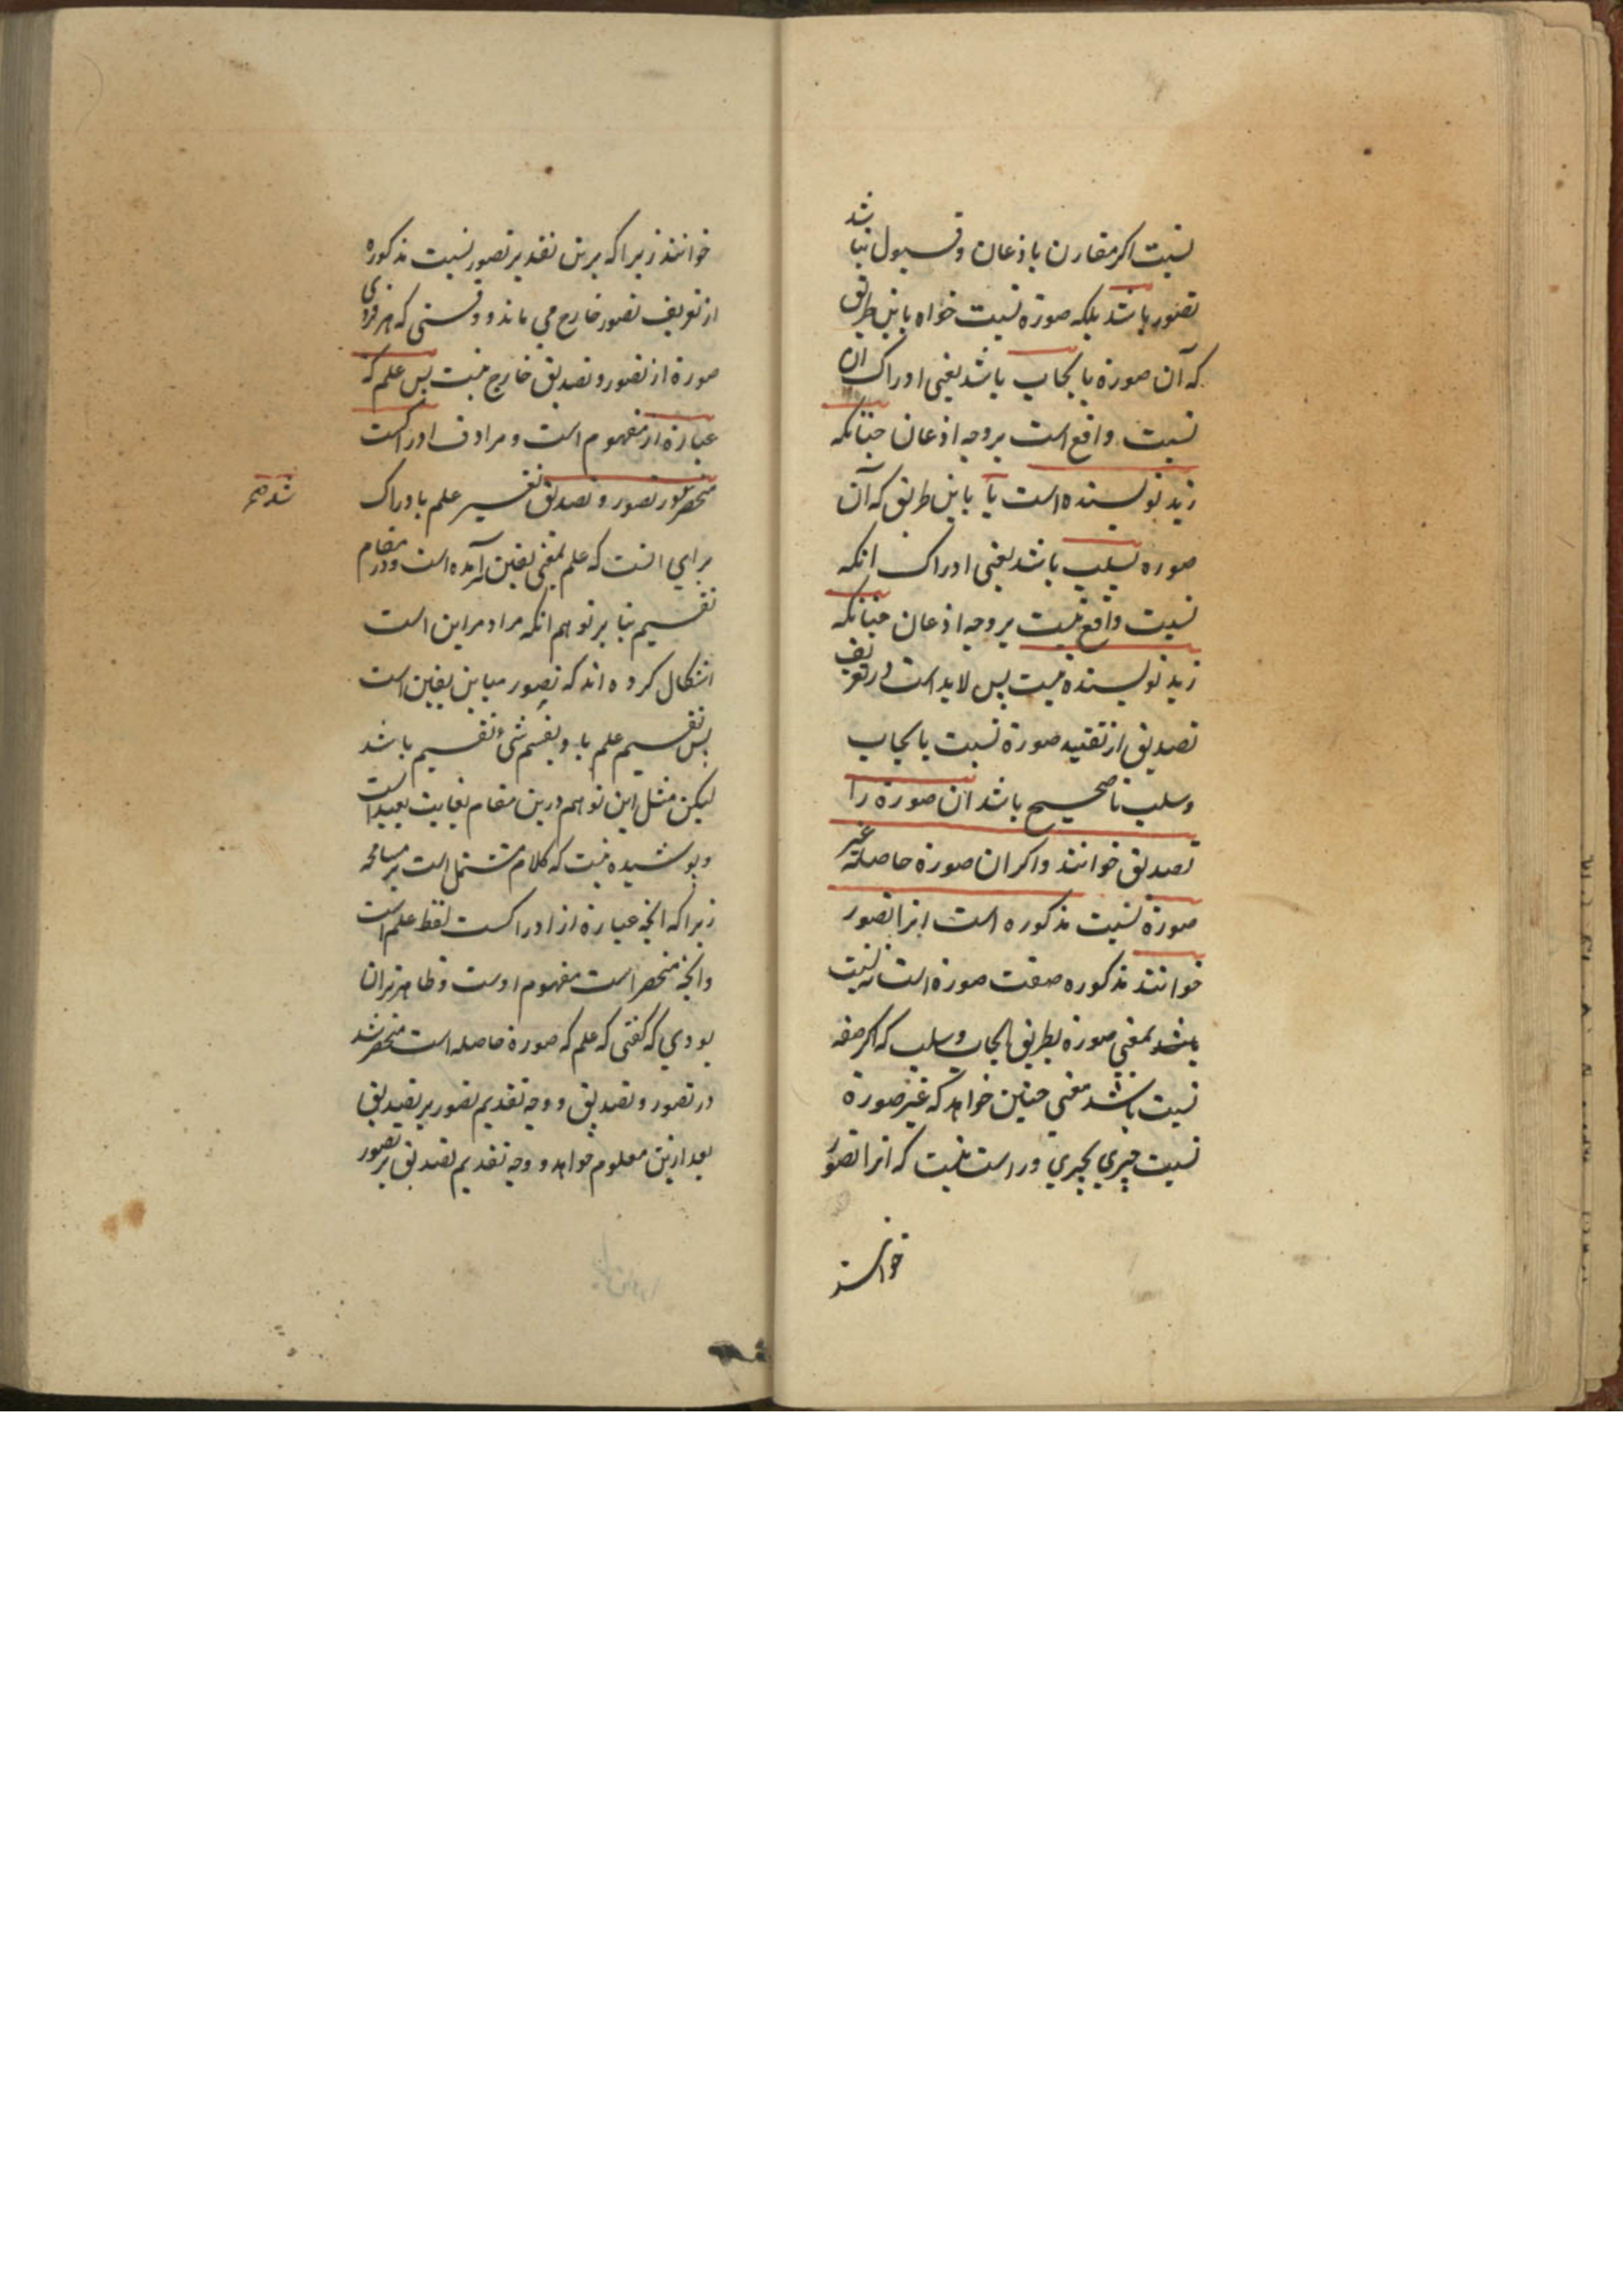 نسبت اکر مقارن باذعان و قبول نباشد
تصور باشد بلکه صورة نسبت خواه باین طریق
که آن صورة بایجاب باشد یعنی ادراک ان
نسبت واقع است بر وجه اذعان چنانکه
زید نویسنده است یا باین طریق که آن
صورة بسلب باشد یعنی ادراک انکه
نسبت واقع نیست بر وجه اذعان چنانکه
زید نویسنده نیست پس لابد است در تعریف
تصدیق از تقیید صورة نسبت بایجاب
وسلب تا صحیح باشد ان صورة را
تصدیق خوانند واکر ان صورة حاصله غیر
صورة نسبت مذکوره است انرا تصور
خوانند مذکوره صفت صورة است نه نسبت
باشد بمعنی صورة بطریق ایجاب وسلب که اکر صفه
نسبت باشد معنی چنین خواهد که غیر صورة
نسبت چیزی بچیزی ور است نیست که انرا تصور
خوانند
خوانند زیرا که برین تقدیر تصور نسبت مذکوره
از تعریف تصور خارج می ماند و وقستی که هر فردی
صورة از تصور و تصدیق خارج نیست پس علم که
عبارة از مفهوم است و مرادف ادراکست
منحصر در تصور و تصدیق تفسیر علم بادراک
شد صح
برای انست که علم بمعنی یقین آمده است ودر مقام
تقسیم بنا بر توهم انکه مراد مر این است
اشکال کرده اند که تصور مباین یقین است
پس تقسیم علم باو تقسیم شیء تقسیم باشد
لیکن مثل این توهم درین مقام بغایت بعید است
وپوشیده نیست که کلام مشتمل است بر مسامحه
زیرا که انچه عبارة از ادراکست لفظ علم است
وانچه منحصر است مفهوم اوست وظاهر تر ان
بودی که کفتی که علم که صورة حاصله است منحصر شد
در تصور و تصدیق و وجه تقدیم تصور بر تصدیق
بعد ازین معلوم خواهد و وجه تقدیم تصدیق بر تصور